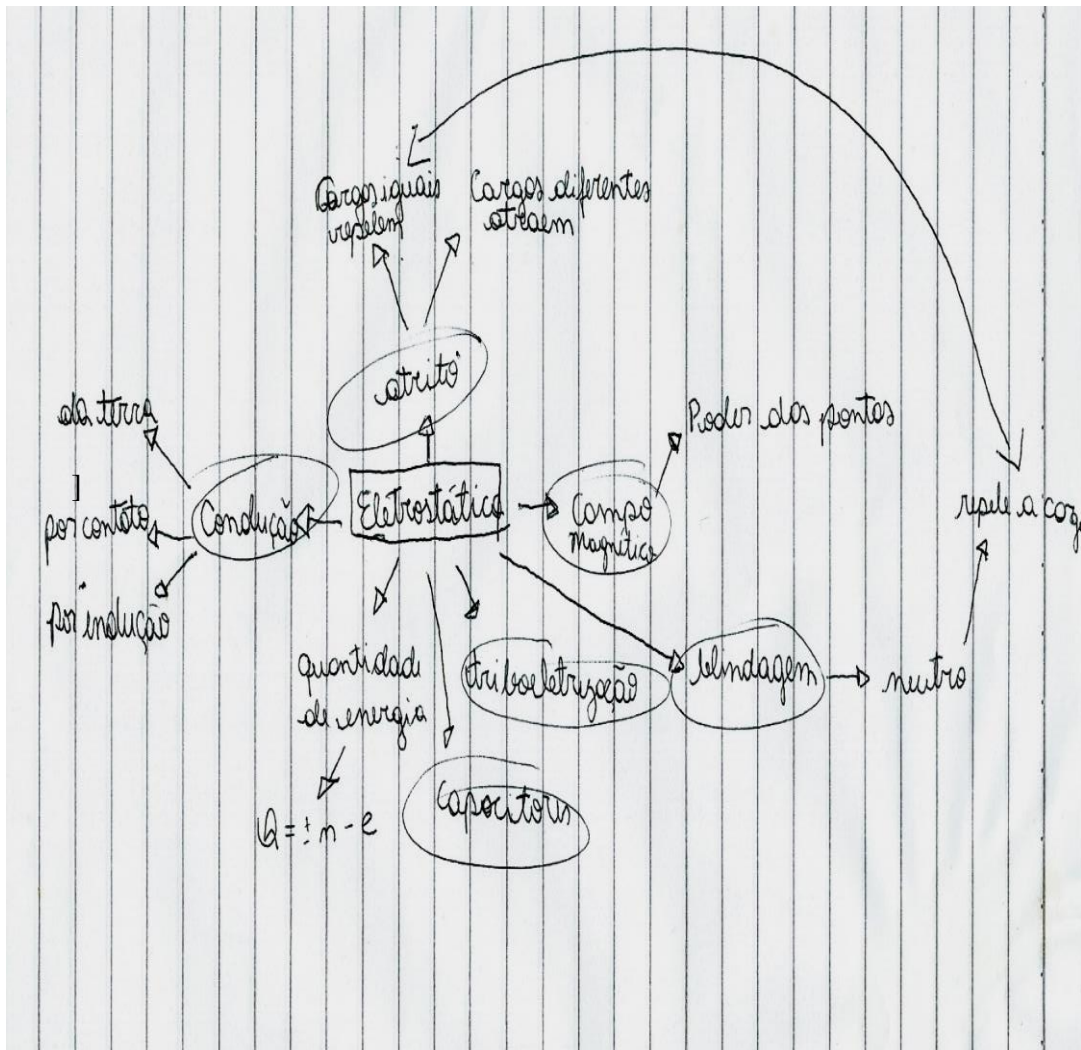 Cargas iguais
repelem
Cargas diferentes
atraem
atrito
da terra
Poder das pontas
]
Condução
Eletrostática
Campo
Magnético
por contato
repele a carga
por indução
quantidade
de energia
triboeletrização
blindagem
neutro
Capacitores
Q = ± n - e